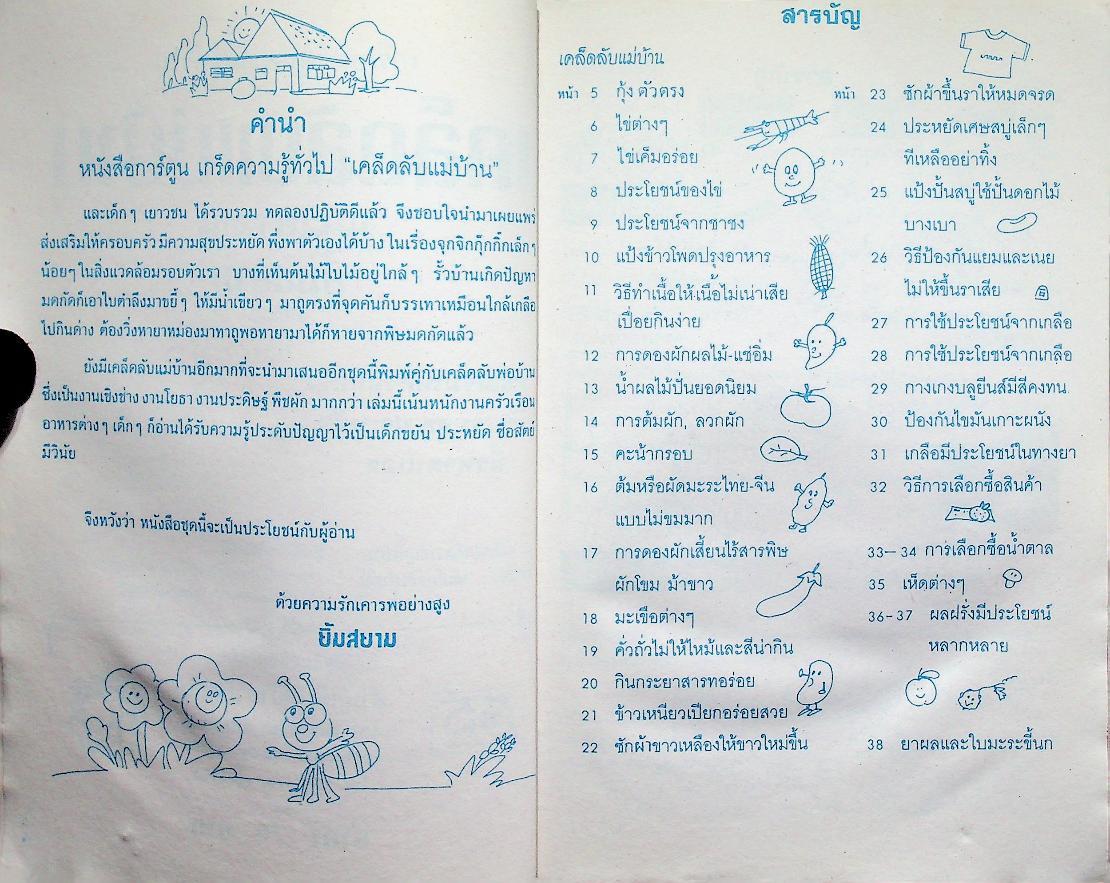 คำนำ
หนังสือการ์ตูน เกร็ดความรู้ทั่วไป "เคล็ดลับแม่บ้าน"
และเด็กๆ เยาวชน ได้รวบรวม ทดลองปฏิบัติดีแล้ว จึงชอบใจนำมาเผยแพร่
ส่งเสริมให้ครอบครัว มีความสุขประหยัด พึ่งพาตัวเองได้บ้าง ในเรื่องจุกจิกกุ๊กกิ๊กเล็กๆ
น้อยๆ ในสิ่งแวดล้อมรอบตัวเรา บางที่เห็นต้นไม้ใบไม้อยู่ใกล้ๆ รั้วบ้านเกิดปัญหา
มดกัดก็เอาใบตำลึงมาขยี้ๆ ให้มีน้ำเขียวๆ มาถูตรงที่จุดคันก็บรรเทาเหมือนใกล้เกลือ
ไปกินด่าง ต้องวิ่งหายาหม่องมาทาถูพอหายามาได้ก็หายจากพิษมดกัดแล้ว
ยังมีเคล็ดลับแม่บ้านอีกมากที่จะนำมาเสนออีกชุดนี้พิมพ์คู่กับเคล็ดลับพ่อบ้าน
ซึ่งเป็นงานเชิงช่าง งานโยธา งานประดิษฐ์ พืชผัก มากกว่า เล่มนี้เน้นหนักงานครัวเรือน
อาหารต่างๆ เด็กๆ ก็อ่านได้รับความรู้ประดับปัญญาไว้เป็นเด็กขยัน ประหยัด ซื่อสัตย์
มีวินัย
จึงหวังว่า หนังสือชุดนี้จะเป็นประโยชน์กับผู้อ่าน
ด้วยความรักเคารพอย่างสูง
ยิ้มสยาม
สารบัญ
เคล็ดลับแม่บ้าน
หน้า 5 กุ้ง ตัวตรง
6 ไข่ต่างๆ
7 ไข่เค็มอร่อย
8 ประโยชน์ของไข่
9 ประโยชน์จากชาชง
10 แป้งข้าวโพดปรุงอาหาร
11 วิธีทำเนื้อให้เนื้อไม่เน่าเสีย
เปื่อยกินง่าย
12 การดองผักผลไม้-แช่อิ่ม
13 น้ำผลไม้ปั่นยอดนิยม
14 การต้มผัก, ลวกผัก
15 คะน้ากรอบ
16 ต้มหรือผัดมะระไทย-จีน
แบบไม่ขมมาก
17 การดองผักเสี้ยนไร้สารพิษ
ผักโขม ม้าขาว
18 มะเขือต่างๆ
19 คั่วถั่วไม่ให้ไหม้และสีน่ากิน
20 กินกระยาสารทอร่อย
21 ข้าวเหนียวเปียกอร่อยสวย
22 ซักผ้าขาวเหลืองให้ขาวใหม่ขึ้น
หน้า 23 ซักผ้าขึ้นราให้หมดจรด
24 ประหยัดเศษสบู่เล็กๆ
ทีเหลืออย่าทิ้ง
25 แป้งปั้นสบู่ใช้ปั้นดอกไม้
บางเบา
26 วิธีป้องกันแยมและเนย
ไม่ให้ขึ้นราเสีย
27 การใช้ประโยชน์จากเกลือ
28 การใช้ประโยชน์จากเกลือ
29 กางเกงบลูยีนส์มีสีคงทน
30 ป้องกันไขมันเกาะผนัง
31 เกลือมีประโยชน์ในทางยา
32 วิธีการเลือกซื้อสินค้า
33-34 การเลือกซื้อน้ำตาล
35 เห็ดต่างๆ
36-37 ผลฝรั่งมีประโยชน์
หลากหลาย
38 ยาผลและใบมะระขี้นก